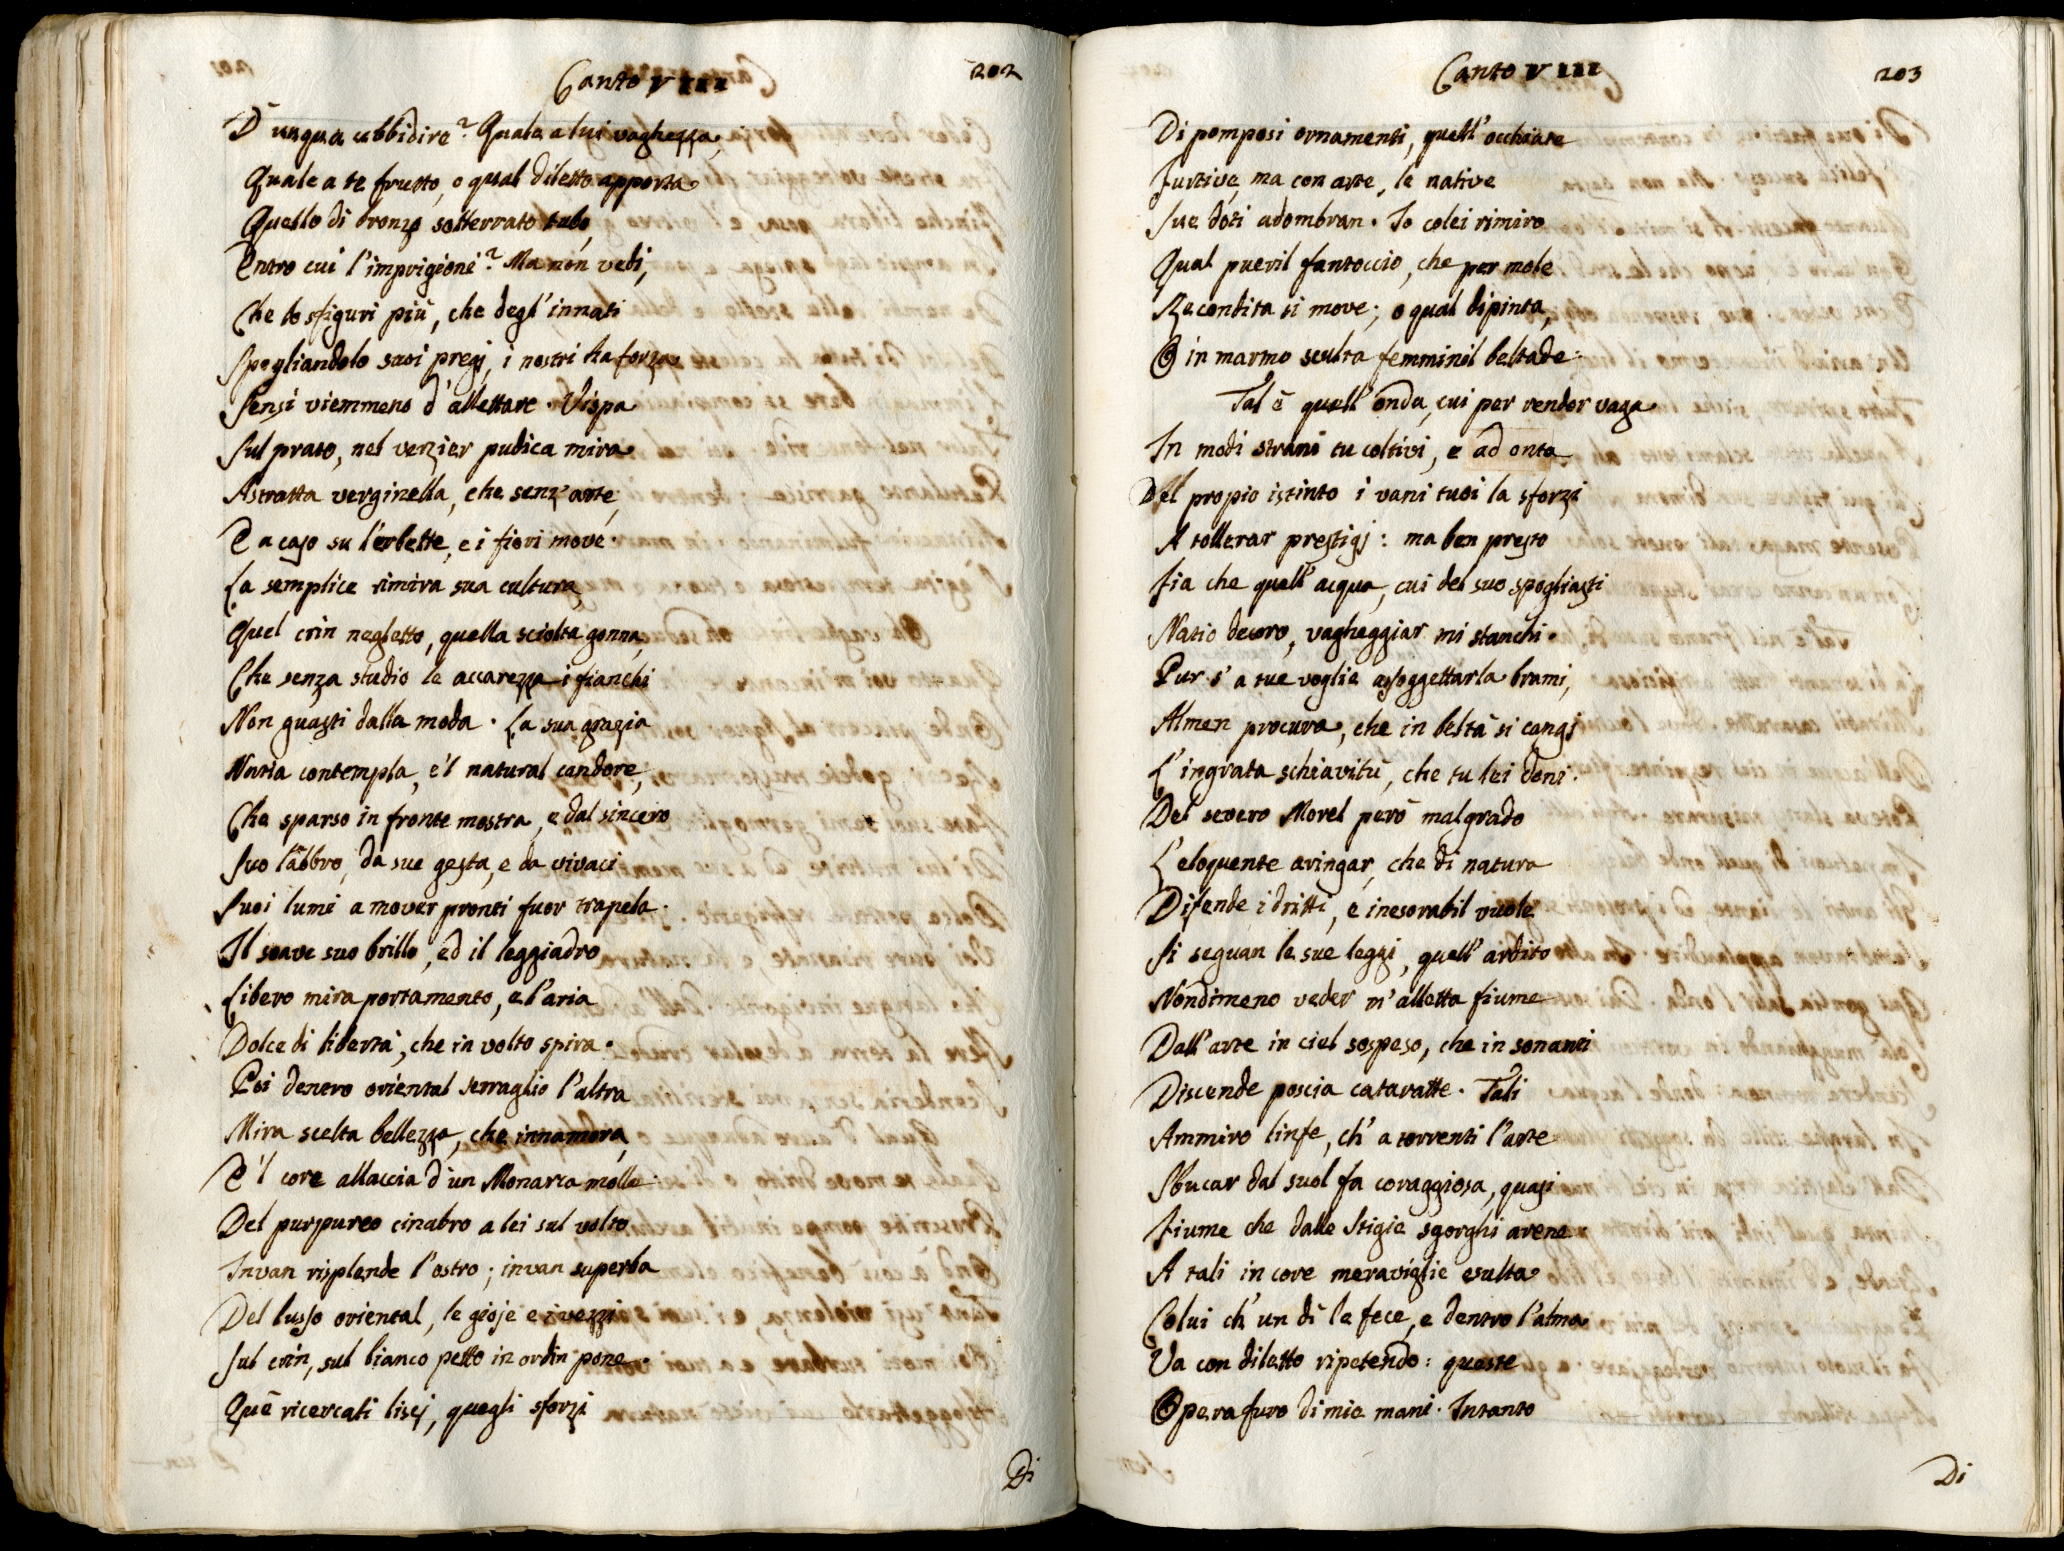 Canto VIII
202
D' unqua ubbidire? Quale a lui vaghezza,
Quale a te frutto, o qual diletto apporta
Quello di bronzo sotterrato tubo,
Entro cui l'imprigioni? Ma non vedi,
Che lo sfiguri più, che degl'innati
Spogliandolo suoi pregj, i nostri ha forza
Sensi viemmeno d'allettare. Vispa
Sul prato, nel verzier pudica mira
Astratta verginella, che senz'arte,
E a caso su l'erbette, e i fiori move.
La semplice rimira sua cultura,
Quel crin negletto, quella sciolta gonna,
Che senza studio le accarezza i fianchi
Non guasti dalla moda. La sua grazia
Natia contempla, e'l natural candore,
Che sparso in fronte mostra, e dal sincero
Suo labbro, da sue gesta, e da vivaci
Suoi lumi a mover pronti fuor trapela.
Il soave suo brillo, ed il leggiadro
Libero mira portamento, e l'aria
Dolce di libertà, che in volto spira.
Poi dentro oriental serraglio l'altra
Mira scelta bellezza, che innamora,
E'l core allaccia d'un Monarca molle.
Del purpureo cinabro a lei sul volto
Invan risplende l'ostro; invan superba
Del lusso oriental, le gioje e i vezzi
Sul crin, sul bianco petto in ordin pone.
Què ricercati liscj, quegli sforzi
Di
Canto VIII
203
Di pomposi ornamenti, quell'occhiate
Furtive, ma con arte, le native
Sue doti adombran. Io colei rimiro
Qual pueril fantoccio, che per mole
Recondita si move; o qual dipinta,
O in marmo sculta femminil beltade.
Tal è quell'onda, cui per render vaga
In modi strani tu coltivi, e ad onta
Del propio istinto i vani tuoi la sforzi
A tollerar prestigj: ma ben presto
Fia che quell'acqua, cui del suo spogliasti
Natio decoro, vagheggiar mi stanchi.
Pur s' a tue voglie assoggettarla brami,
Almen procura, che in beltà si cangj
L'ingrata schiavitù, che tu lei doni.
Del severo Morel però malgrado
L'eloquente aringar, che di natura
Difende i dritti, e inesorabil vuole
Si seguan le sue leggi, quell'ardito
Nondimeno veder m'alletta fiume
Dall'arte in ciel sospeso, che in sonanti
Discende poscia cataratte. Tali
Ammiro linfe, ch'a torrenti l'arte
Sbucar dal suol fa coraggiosa, quasi
Fiume che dalle Stigie sgorghi arene
A tali in core meraviglie esulta
Colui ch'un dì le fece, e dentro l'alma
Va con diletto ripetendo: queste
Opera furo di mie mani. Intanto
Di